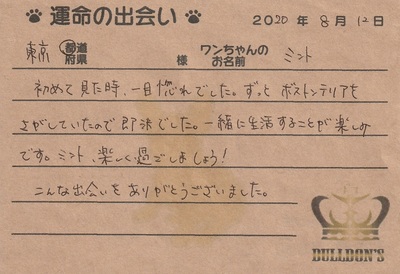 運命の出会い 2020年 8月 12日
東京 都道府県 様 ワンちゃんのお名前 ミント
初めて見た時、一目惚れでした。ずっと ボストンテリアを
さがしていたので即決でした。一緒に生活することが楽しみ
です。ミント、楽しく過ごしましょう!
こんな出会いをありがとうございました。
BULLDON'S